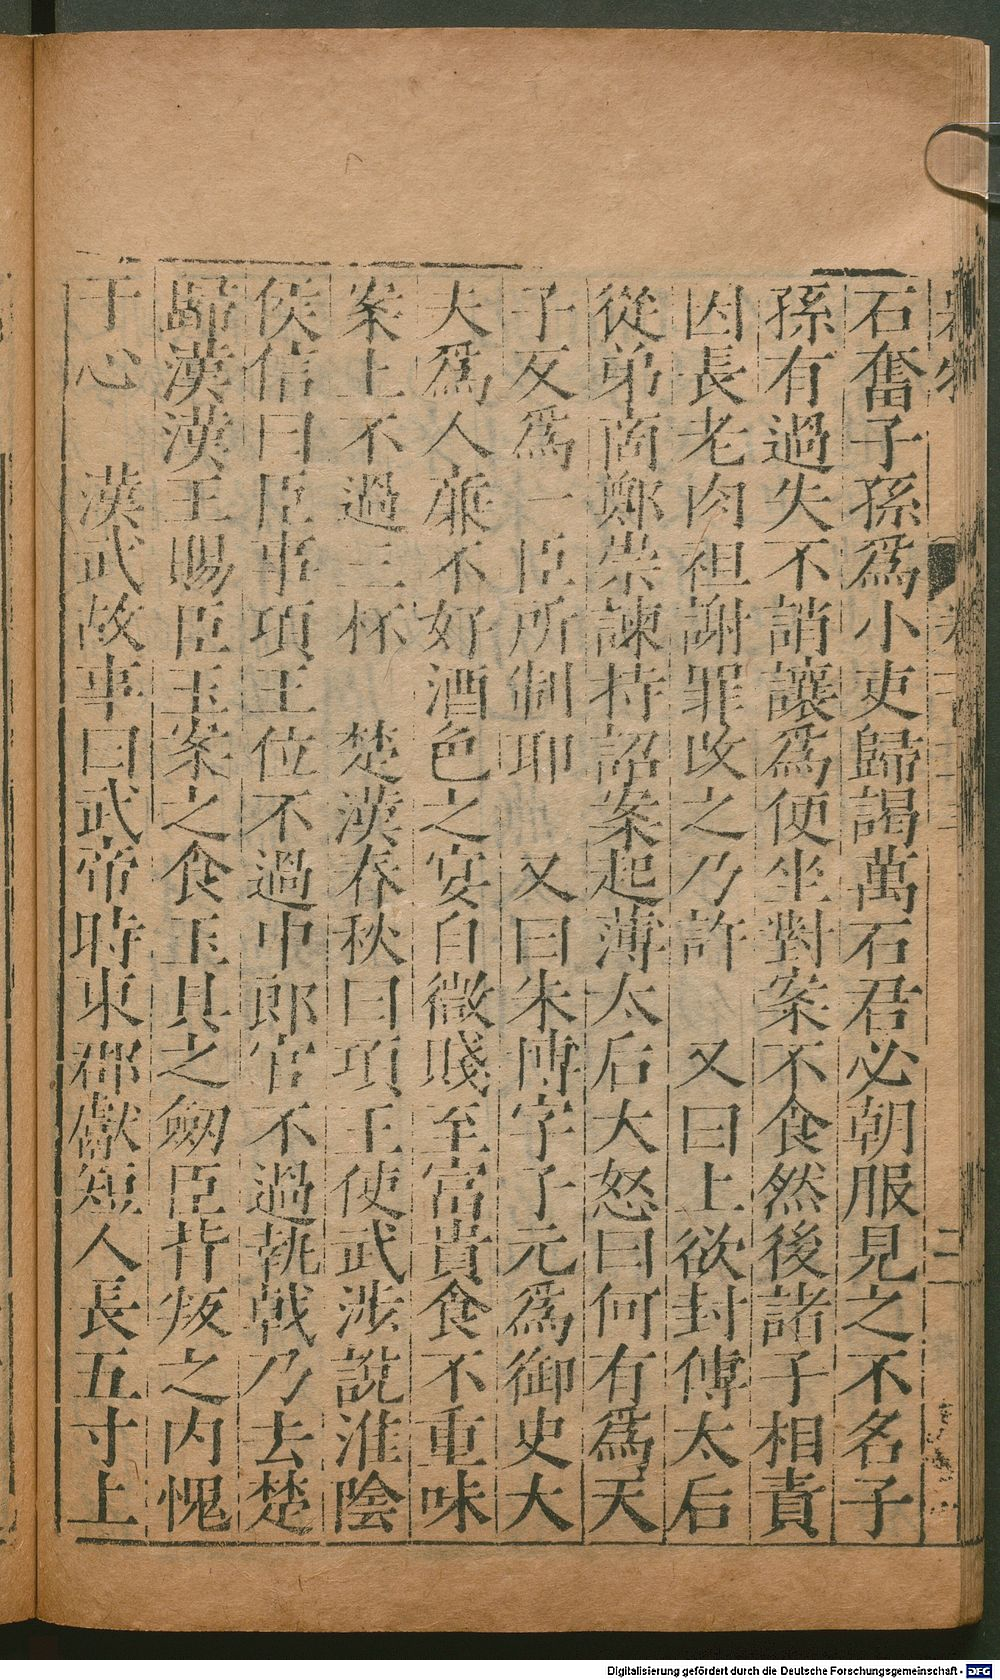 石奮子孫爲小吏歸謁萬石君必朝服見之不名子
孫有過失不誚讓爲便坐對案不食然後諸子相責
因長老肉袒謝罪改之乃許　又曰上欲封傅太后
從弟商鄭崇諫持詔案起薄太后大怒曰何有爲天
子反爲一臣所制耶　又曰朱博字子元爲御史大
夫爲人廉不好酒色之宴自微賤至富貴食不重味
案上不過三杯　楚漢春秋曰項王使武涉說淮陰
侯信曰臣事項王位不過中郎官不過執戟乃去楚
歸漢漢王賜臣玉案之食玉具之劒臣背叛之内愧
于心　漢武故事曰武帝時東郡獻短人長五寸上
二
Digitalisierung gefördert durch die Deutsche Forschungsgemeinschaft - DFG